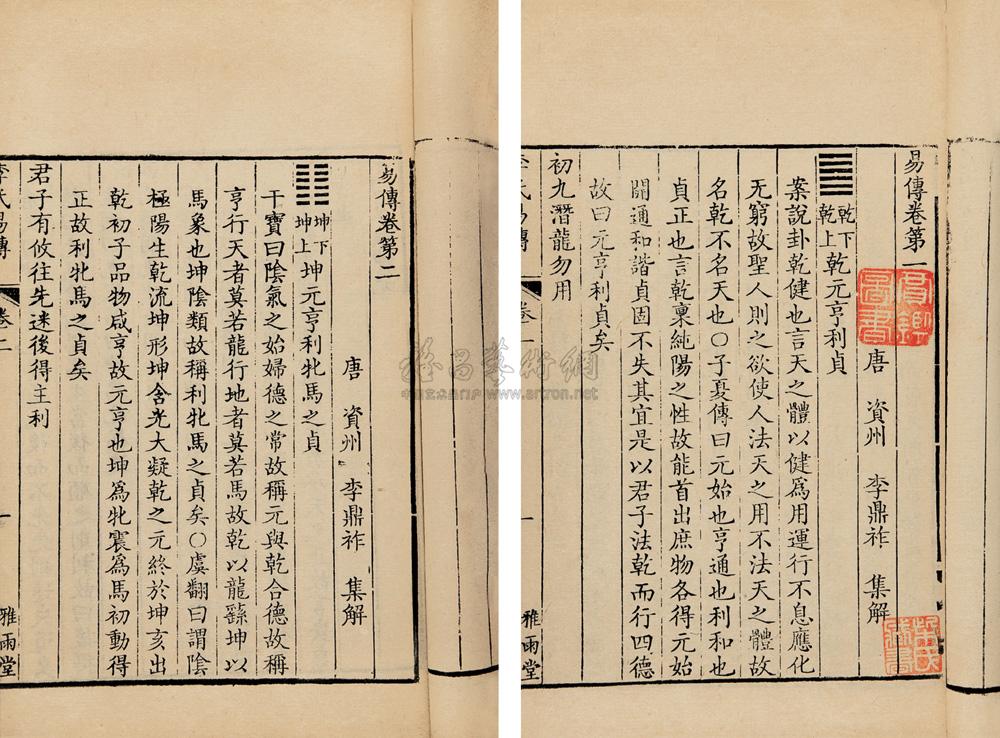 易傳卷第一
唐 資州 李鼎祚 集解
䷀乾下乾上乾元亨利貞
案說卦乾健也言天之體以健爲用運行不息應化
无窮故聖人則之欲使人法天之用不法天之體故
名乾不名天也〇子夏傳曰元始也亨通也利和也
貞正也言乾稟純陽之性故能首出庶物各得元始
開通和諧貞固不失其宜是以君子法乾而行四德
故曰元亨利貞矣
初九潛龍勿用
李氏易傳 卷一 一 雅雨堂
易傳卷第二
唐 資州 李鼎祚 集解
䷁坤下坤上坤元亨利牝馬之貞
干寶曰陰氣之始婦德之常故稱元與乾合德故稱
亨行天者莫若龍行地者莫若馬故乾以龍繇坤以
馬象也坤陰類故稱利牝馬之貞矣〇虞翻曰謂陰
極陽生乾流坤形坤含光大凝乾之元終於坤亥出
乾初子品物咸亨故元亨也坤爲牝震爲馬初動得
正故利牝馬之貞矣
君子有攸往先迷後得主利
李氏易傳 卷二 一 雅雨堂
雅昌藝術網
www.artron.net